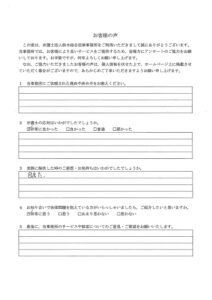 お客様の声
この度は、弁護士法人鈴木総合法律事務所をご利用いただきまして誠にありがとうございます。
当事務所では、お客様により良いサービスをご提供するため、皆様方にアンケートのご協力をお願い
しております。お手数ですが、何卒よろしくお願い申し上げます。
なお、ご協力いただきましたお客様の声は、個人情報を伏せた上で、ホームページ上に掲載させ
ていただく場合がございますので、あらかじめご了承いただきますようお願い申し上げます。
1 当事務所にご依頼された理由や決め手をお教えください。
2 弁護士の対応はいかがでしたでしょうか。
①非常に良かった ②良かった ③普通 ④悪かった
3 実際に相談した時のご感想・お気持ちはいかがでしたでしょうか。
4 お知り合いで法律問題を抱えている方がいらっしゃいましたら、ご紹介したいと思いますか。
①非常に思う ②思う ③あまり思わない ④思わない
5 最後に、当事務所のサービスや接客についてのご意見・ご要望をお願いいたします。